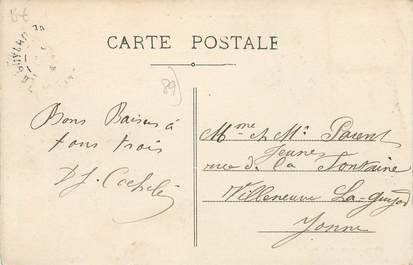 15€
CARTE POSTALE
89
Bons Baisers à
tous trois
Mme et Mr Parent
Jeunes
rue de la Fontaine
Villeneuve La-Guyard
Yonne